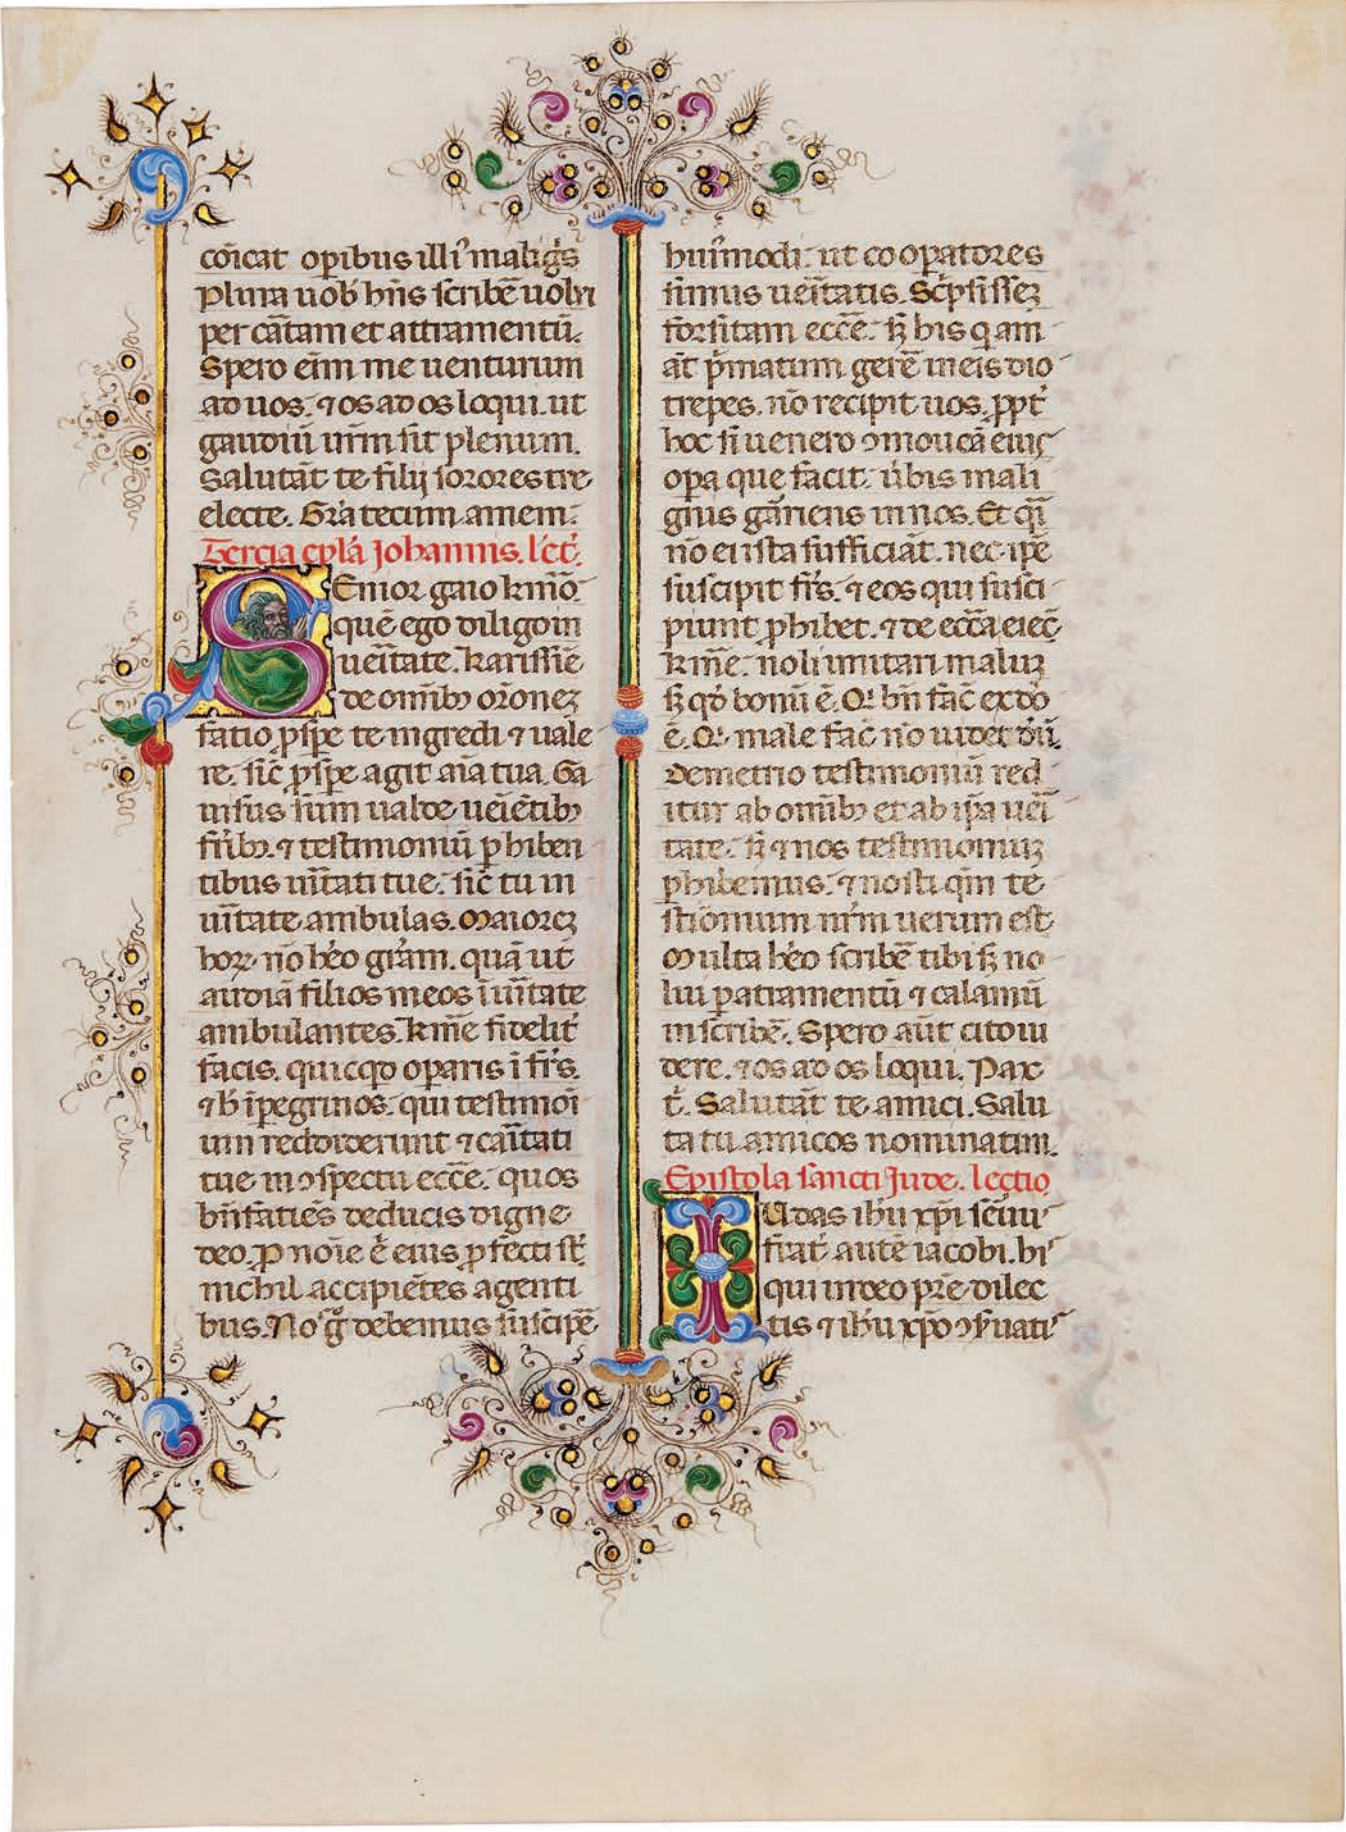 cōicat opibus illi᷒ malig̃s
Plura uob̄ hn̄s scribē uolui
per cāt̄am et attramentū.
Spero eīm me uenturum
ad uos. ⁊ os ad os loqui. ut
gaudiū ur̄m sit plenum.
Salutāt te filij sorores tue
electe. Gr̄a tecum amem.
Tercia epl̄a Johannis. lēct̄.
SEnior gaio km̄o
quē ego diligo in
ueīt̄ate. Karissīe
de omīb; or̄onez
fatio ꝓspe te ingredi ⁊ uale
re. sic̄ ꝓspe agit aīa tua. Ga
uisus sum ualde ueīētib;
frīb;. ⁊ testimoniū ꝑhiben
tibus uīt̄ati tue. sic̄ tu in
uīt̄ate ambulas. Maiorez
hoꝝ nō hēo grām. quā ut
audiā filios meos ī uīt̄ate
ambulantes. Km̄e fidelit̄
facis. quicqd̄ oparis ī fr̄s.
⁊ h̄ ī peregrinos. qui testimōi
um reddiderunt ⁊ caīt̄ati
tue in ↄspectu ecc̄e. quos
bn̄ faciēs deducis digne
deo. ꝓ noīe ē eius ꝓfecti st̄.
nichil accipiētes a genti
bus. No᷒ g̊ debemus suscipē
huīmodi. ut co opatores
simus ueīt̄atis. Sc̄psissez
forsitam ecc̄e. sꝫ his q am
āt p̄matum gerē in eis dio
trepes. nō recipit nos. ꝓpt̄
hoc si uenero ↄmoueā eius
opa que facit. ūbis mali
gnis gārriens in nos. Et qī
nō ei ista sufficiāt. nec ip̄e
suscipit fr̄s. ⁊ eos qui susci
piunt ꝓhibet. ⁊ de ecc̄a eiec̄
km̄e. noli imitari maluz
sꝫ qd̄ bonū ē. Qi bn̄ fac̄ ex dō
ē. Qi male fac̄ nō uidet dū.
Demetrio testimoniū red
itur ab omīb; et ab ip̄a ueī
tate. sꝫ ⁊ nos testimoniuz
ꝑhibemus. ⁊ nosti qm̄ te
stīonium nr̄m uerum est
Multa hēo scribē tibi sꝫ no
lui ꝑ atramentū ⁊ calamū
inscribē. Spero aūt cito ui
dere. ⁊ os ad os loqui. Pax
t̄. Salutāt te amici. Salu
ta tu amicos nominatim.
Epistola sancti Jude. lectio
IUdas ihū xp̄i seīui
frat̄ autē iacobi. hi᷒
qui in deo pr̄e dilec
tis ⁊ ihū xp̄o ↄsuati᷒